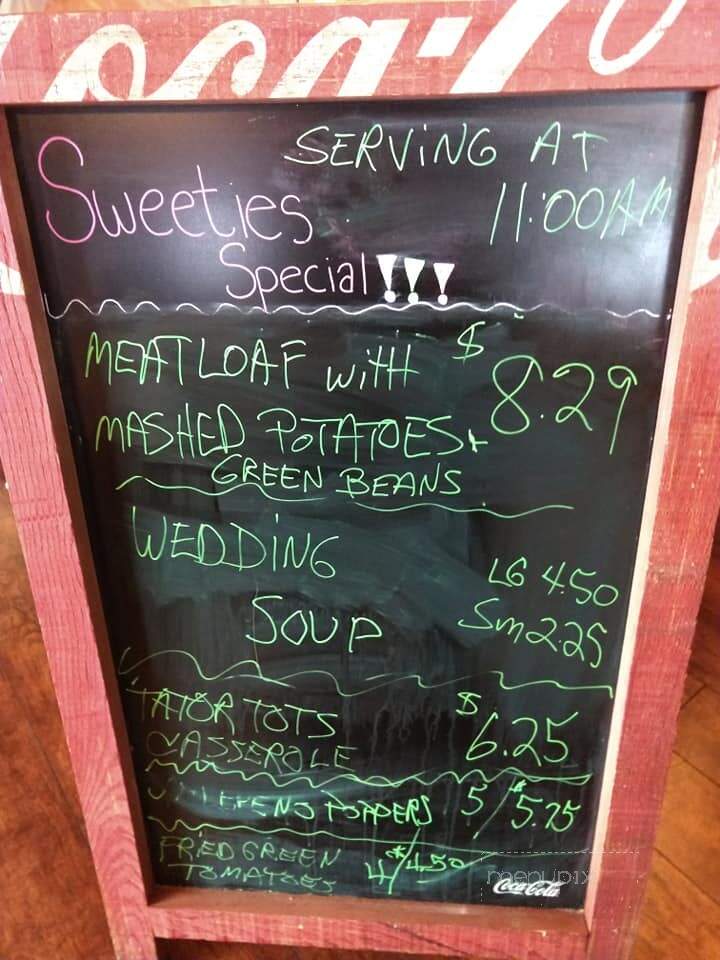 Coca-Co
SERVING AT
11:00AM
Sweeties
Special!!!
MEATLOAF with $8.29
MASHED POTATOES +
GREEN BEANS
WEDDING
SOUP
LG 4.50
Sm 2.25
TATOR TOTS $6.25
CASSEROLE
POPPERS 5/$5.75
FRIED GREEN 4/$4.50
TOMATOES
menupix
Coca-Cola